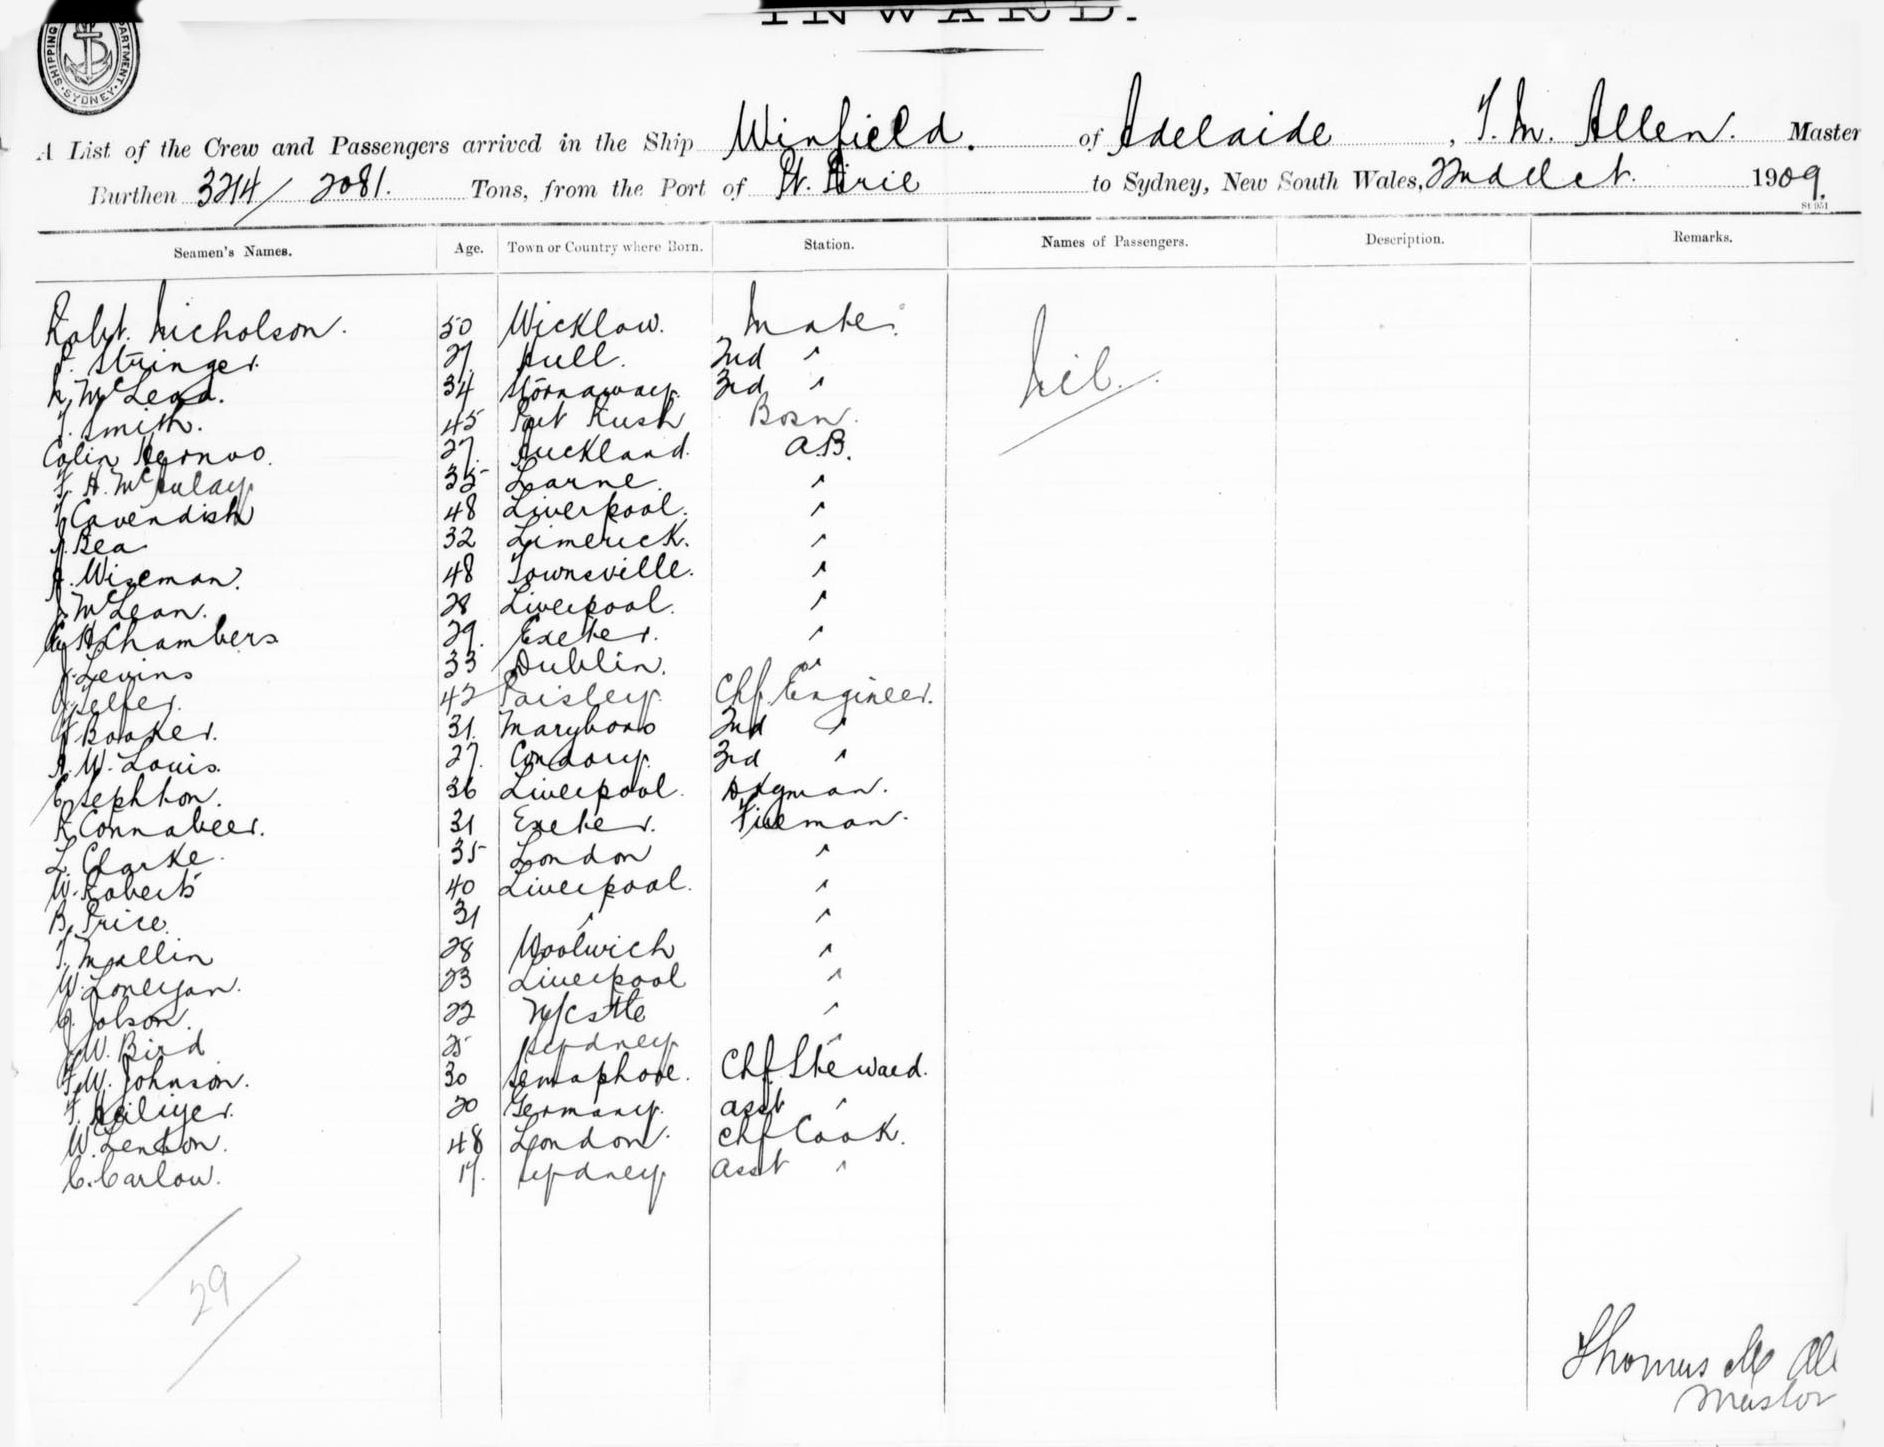 INWARD.
SHIPPING DEPARTMENT. SYDNEY.
A List of the Crew and Passengers arrived in the Ship Winfield. of Adelaide, T. M. Allen. Master
Burthen 3214/2081. Tons, from the Port of Pt. Pirie to Sydney, New South Wales, 1909.
Seamen's Names. Age. Town or Country where Born. Station. Names of Passengers. Description. Remarks.
Robt. Nicholson. 50 Wicklow. Mate. Nil.
Stringer. 27. Hull. 2nd "
McLeod. 34 Stornaway. 3rd "
T. Smith. 45 Port Rush Bosn.
Colin 27. Auckland. A.B.
F. H. McAulay 35 Larne. "
Cavendish 48 Liverpool. "
Bea 32 Limerick. "
A. Wiseman. 48 Townsville. "
J. McLean. 28 Liverpool. "
Chambers 29. Exeter. "
J. Levins 33 Dublin. "
Telfer. 42 Paisley. Chf. Engineer.
Booker. 31. Maryboro 2nd "
A. W. Louis. 27. 3rd "
Sephton. 36 Liverpool. Dkyman.
R. Connabeer. 31 Exeter. Fireman.
L. Clarke. 35 London "
W. Roberts 40 Liverpool. "
B. Price. 31 " "
T. Mallin 28 Woolwich "
W. Lonergan. 23 Liverpool "
Jobson. 22 N/Cstle "
W. Bird 25 Sydney "
F. W. Johnson. 30 Semaphore. Chf Steward.
F. 20 Germany. asst "
W. Lenton. 48 London. Chf Cook.
C. Carlow. 17. Sydney asst "
29
Thomas M All
Master